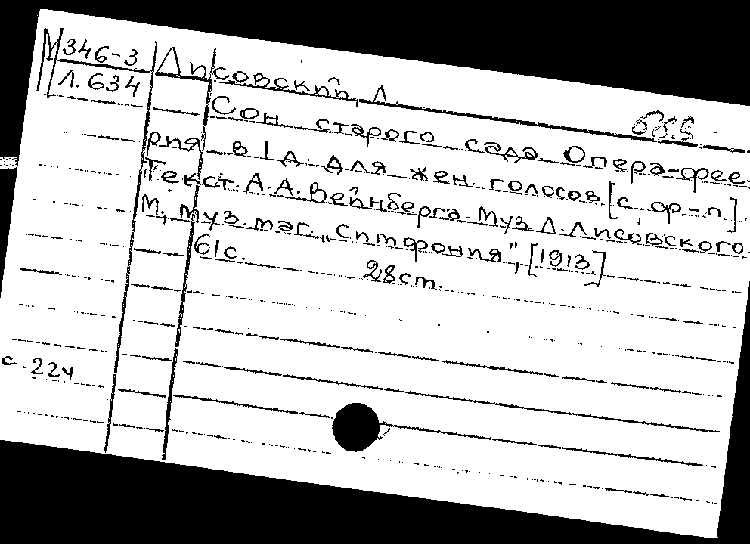 М 346-3
Л. 634
Лисовский, Л.
Сон старого сада. Опера-фее-
рия в 1 д. для жен. голосов [с ор-п.].
Текст А. А. Вейнберга. Муз. Л. Лисовского.
М., муз. маг. „Симфония", [1913.]
61 с. 28 ст.
с. 224